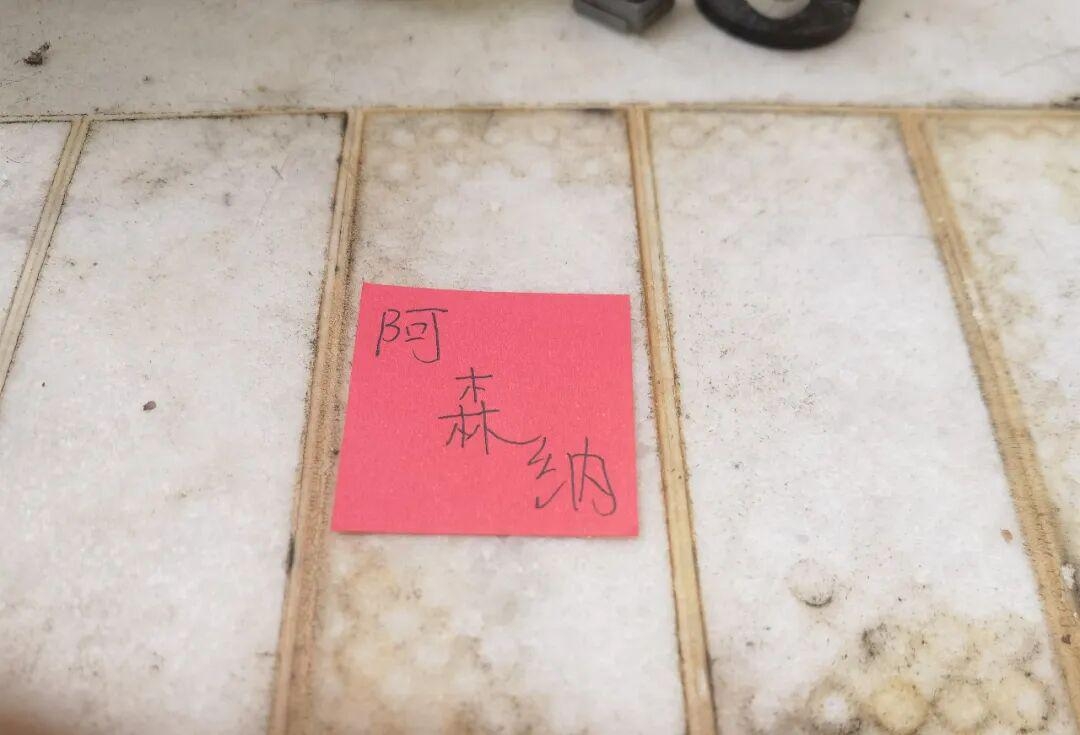 阿森纳